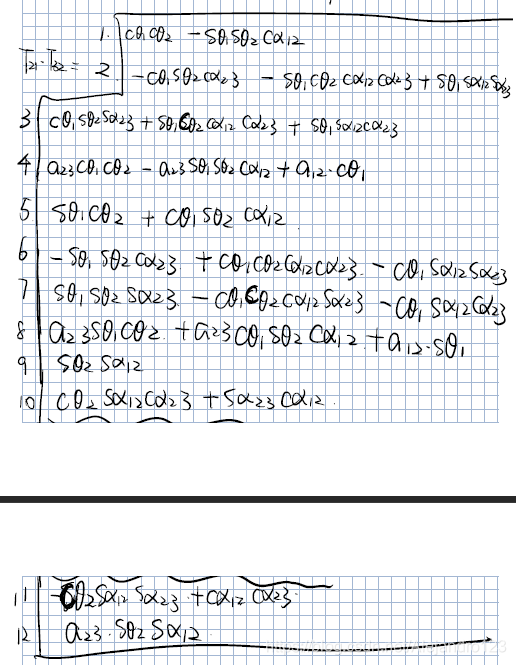 1. cθ₁cθ₂ - sθ₁sθ₂cα₁₂
T₂₁·T₃₂ = 2. -cθ₁sθ₂cα₂3 - sθ₁cθ₂cα₁₂cα₂3 + sθ₁sα₁₂sα₂3
3 cθ₁sθ₂sα₂3 + sθ₁cθ₂cα₁₂cα₂3 + sθ₁sα₁₂cα₂3
4 a₂3cθ₁cθ₂ - a₂3sθ₁sθ₂cα₁₂ + a₁₂·cθ₁
5 sθ₁cθ₂ + cθ₁sθ₂cα₁₂
6 -sθ₁sθ₂cα₂3 + cθ₁cθ₂cα₁₂cα₂3 - cθ₁sα₁₂sα₂3
7 sθ₁sθ₂sα₂3 - cθ₁cθ₂cα₁₂sα₂3 - cθ₁sα₁₂cα₂3
8 a₂3sθ₁cθ₂ + a₂3cθ₁sθ₂cα₁₂ + a₁₂·sθ₁
9 sθ₂sα₁₂
10 cθ₂sα₁₂cα₂3 + sα₂3cα₁₂
11 -cθ₂sα₁₂sα₂3 + cα₁₂cα₂3
12 a₂3·sθ₂sα₁₂